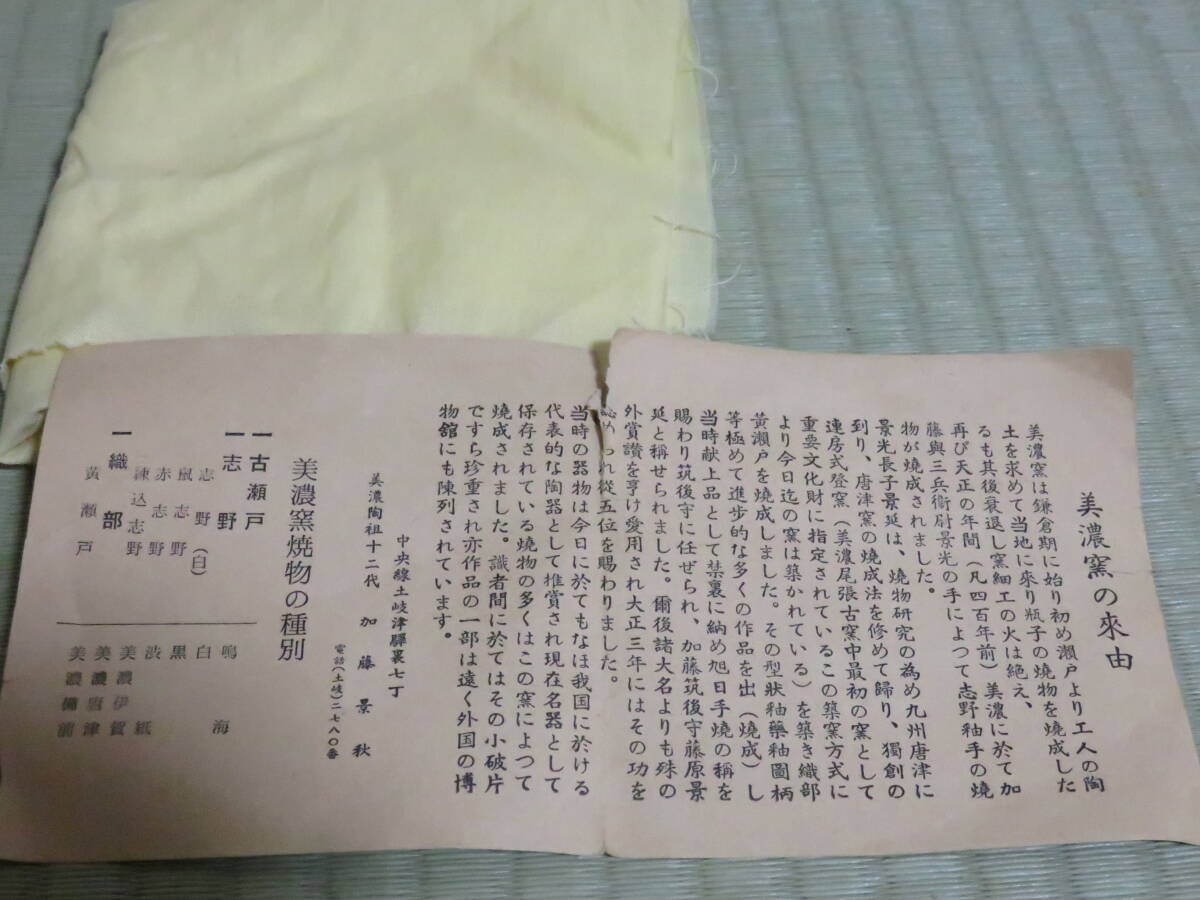 美濃窯の來由
美濃窯は鎌倉期に始り初め瀬戸より工人の陶
土を求めて当地に來り瓶子の燒物を燒成した
るも其後衰退し窯細工の火は絶え、
再び天正の年間（凡四百年前）美濃に於て加
藤與三兵衛尉景光の手によつて志野釉手の燒
物が燒成されました。
景光長子景延は、燒物研究の為め九州唐津に
到り、唐津窯の燒成法を修めて歸り、獨創の
連房式登窯（美濃尾張古窯中最初の窯として
重要文化財に指定されているこの築窯方式に
より今日迄の窯は築かれている）を築き織部
黄瀬戸を燒成しました。その型狀釉藥釉圖柄
等極めて進步的な多くの作品を出（燒成）し
当時献上品として禁裏に納め旭日手燒の稱を
賜わり筑後守に任ぜられ、加藤筑後守藤原景
延と稱せられました。爾後諸大名よりも殊の
外賞讃を亨け愛用され大正三年にはその功を
認められ從五位を賜わりました。
当時の器物は今日に於てもなほ我国に於ける
代表的な陶器として推賞され現在名器として
保存されている燒物の多くはこの窯によつて
燒成されました。識者間に於てはその小破片
ですら珍重され亦作品の一部は遠く外国の博
物舘にも陳列されています。
中央線土岐津驛裏七丁
美濃陶祖十二代 加藤景秋
電話（土岐）二七八〇番
美濃窯焼物の種別
一古瀬戸
一志野
志野（白）
鼠志野
赤志野
練込志野
一織部
黄瀬戸
鳴海
白
黒
渋紙
美濃伊賀
美濃唐津
美濃備前